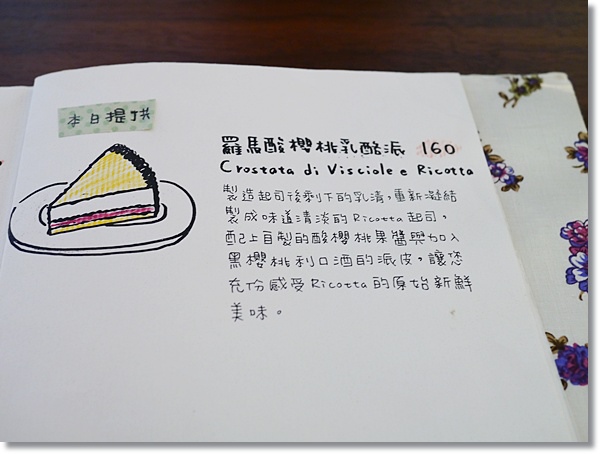 本日提供
羅馬酸櫻桃乳酪派 160
Crostata di Visciole e Ricotta
製造起司後剩下的乳清，重新凝結
製成味道清淡的Ricotta起司，
配上自製的酸櫻桃果醬與加入
黑櫻桃利口酒的派皮，讓您
充份感受Ricotta的原始新鮮
美味。